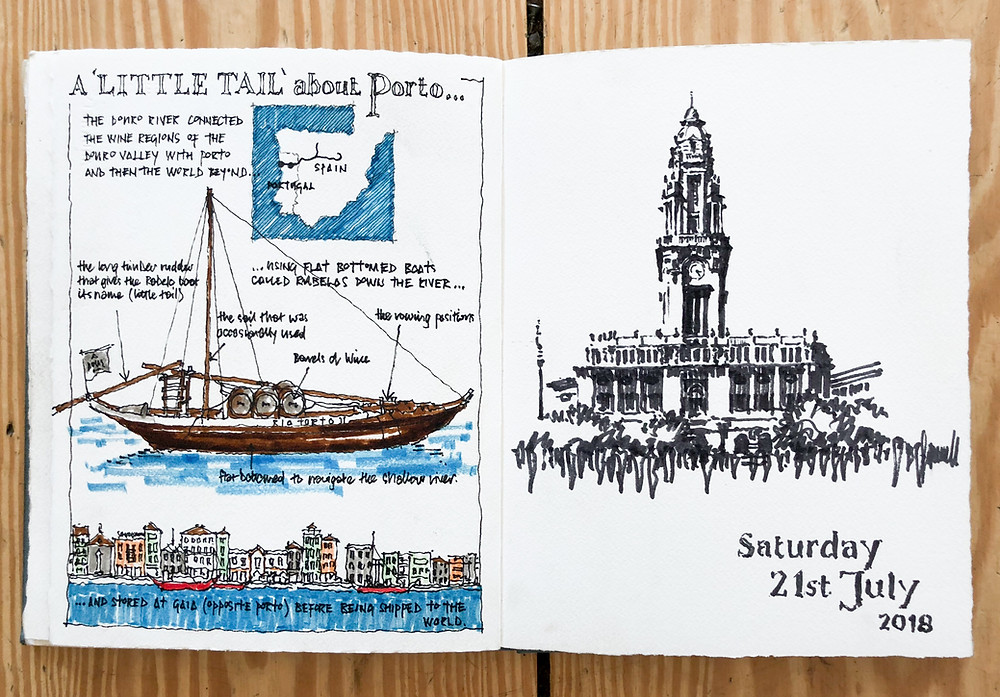 A 'LITTLE TAIL' about Porto...
THE DOURO RIVER CONNECTED
THE WINE REGIONS OF THE
DOURO VALLEY WITH PORTO
AND THEN THE WORLD BEYOND...
SPAIN
PORTUGAL
...USING FLAT BOTTOMED BOATS
CALLED RABELOS DOWN THE RIVER...
the long timber rudder
that gives the Rabelo boat
its name (little tail)
the sail that was
occasionally used
the rowing positions
Barrels of Wine
RIO PORTO II
flat bottomed to navigate the shallow river.
...AND STORED AT GAIA (OPPOSITE PORTO) BEFORE BEING SHIPPED TO THE
WORLD.
Saturday
21st July
2018